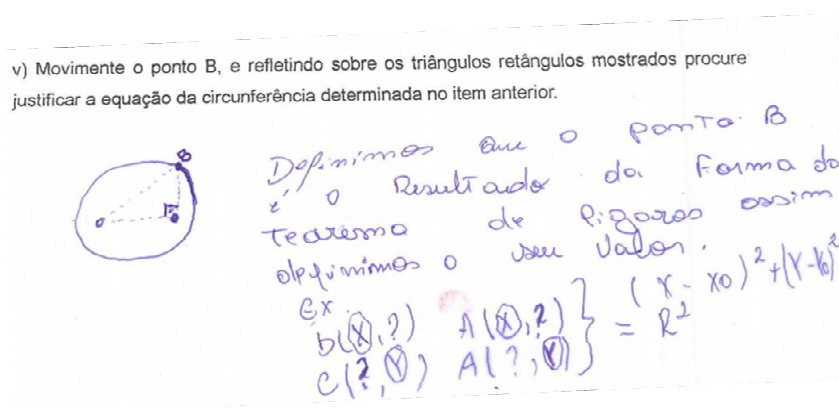 v) Movimente o ponto B, e refletindo sobre os triângulos retângulos mostrados procure
justificar a equação da circunferência determinada no item anterior.
B
Definimos que o ponto B
é o Resultado da Forma do
teorema de assim
definimos o seu valor.
Ex
b(X,?) A(X,?) } (X - X0)² + (Y - Y0)²
C(?,Y) A(?,Y) } = R²